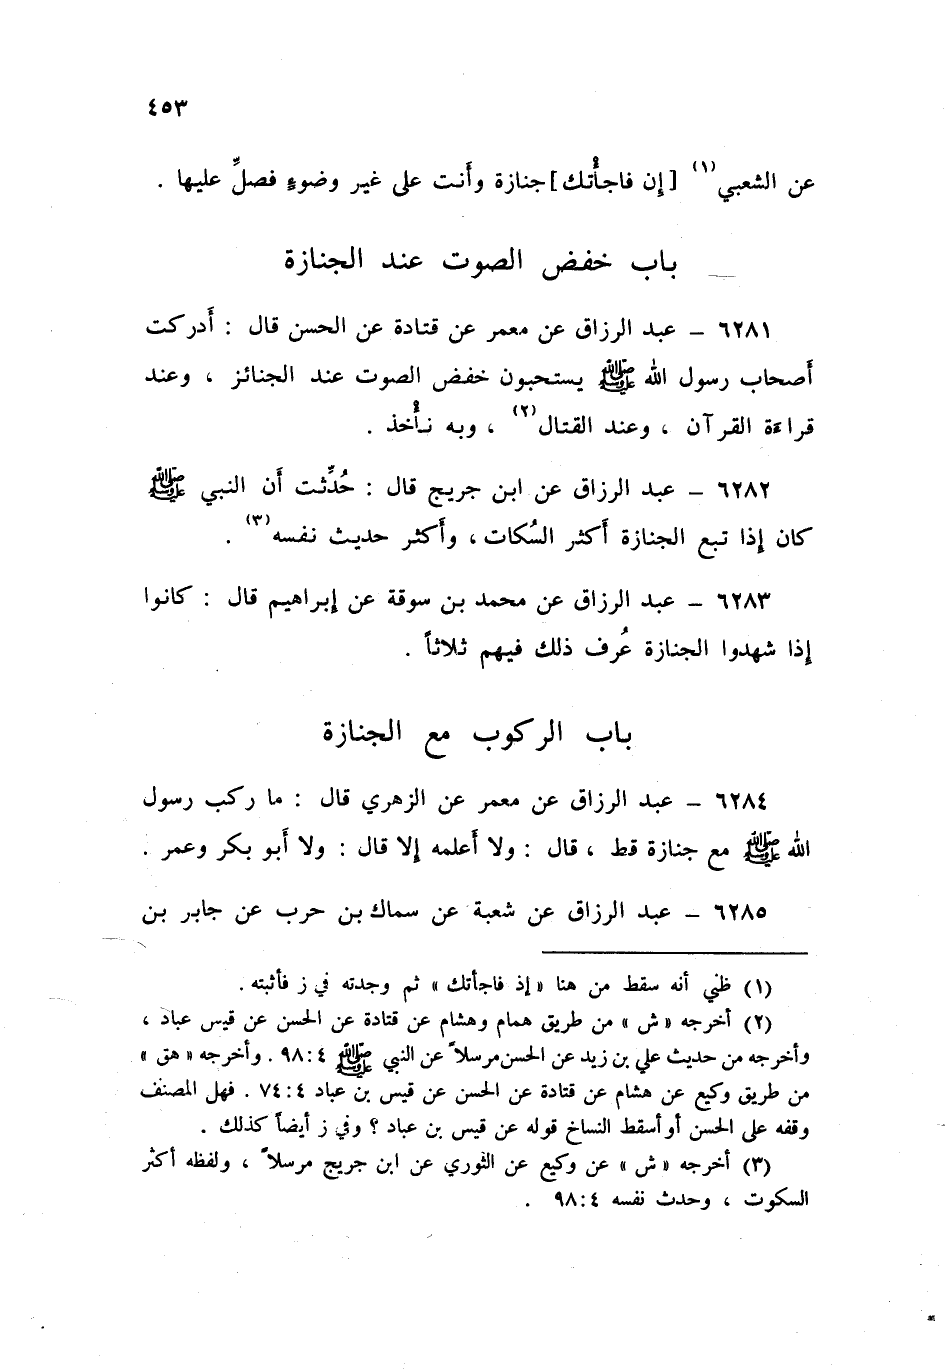 ٤٥٣
عن الشعبي(١) [إن فاجأتك] جنازة وأنت على غير وضوءٍ فصلِّ عليها .
باب خفض الصوت عند الجنازة
٦٢٨١ – عبد الرزاق عن معمر عن قتادة عن الحسن قال : أدركت
أصحاب رسول الله ﷺ يستحبون خفض الصوت عند الجنائز ، وعند
قراءة القرآن ، وعند القتال(٢) ، وبه نأخذ .
٦٢٨٢ – عبد الرزاق عن ابن جريج قال : حُدِّثت أن النبي ﷺ
كان إذا تبع الجنازة أكثر السُكات ، وأكثر حديث نفسه(٣) .
٦٢٨٣ – عبد الرزاق عن محمد بن سوقة عن إبراهيم قال : كانوا
إذا شهدوا الجنازة عُرف ذلك فيهم ثلاثاً .
باب الركوب مع الجنازة
٦٢٨٤ – عبد الرزاق عن معمر عن الزهري قال : ما ركب رسول
الله ﷺ مع جنازة قط ، قال : ولا أعلمه إلا قال : ولا أبو بكر وعمر .
٦٢٨٥ – عبد الرزاق عن شعبة عن سماك بن حرب عن جابر بن
(١) ظني أنه سقط من هنا « إذ فاجأتك » ثم وجدته في ز فأثبته .
(٢) أخرجه « ش » من طريق همام وهشام عن قتادة عن الحسن عن قيس عباد ،
وأخرجه من حديث علي بن زيد عن الحسن مرسلاً عن النبي ﷺ ٩٨:٤ . وأخرجه « هق »
من طريق وكيع عن هشام عن قتادة عن الحسن عن قيس بن عباد ٧٤:٤ . فهل المصنف
وقفه على الحسن أو أسقط النساخ قوله عن قيس بن عباد ؟ وفي ز أيضاً كذلك .
(٣) أخرجه « ش » عن وكيع عن الثوري عن ابن جريج مرسلاً ، ولفظه أكثر
السكوت ، وحدث نفسه ٩٨:٤ .